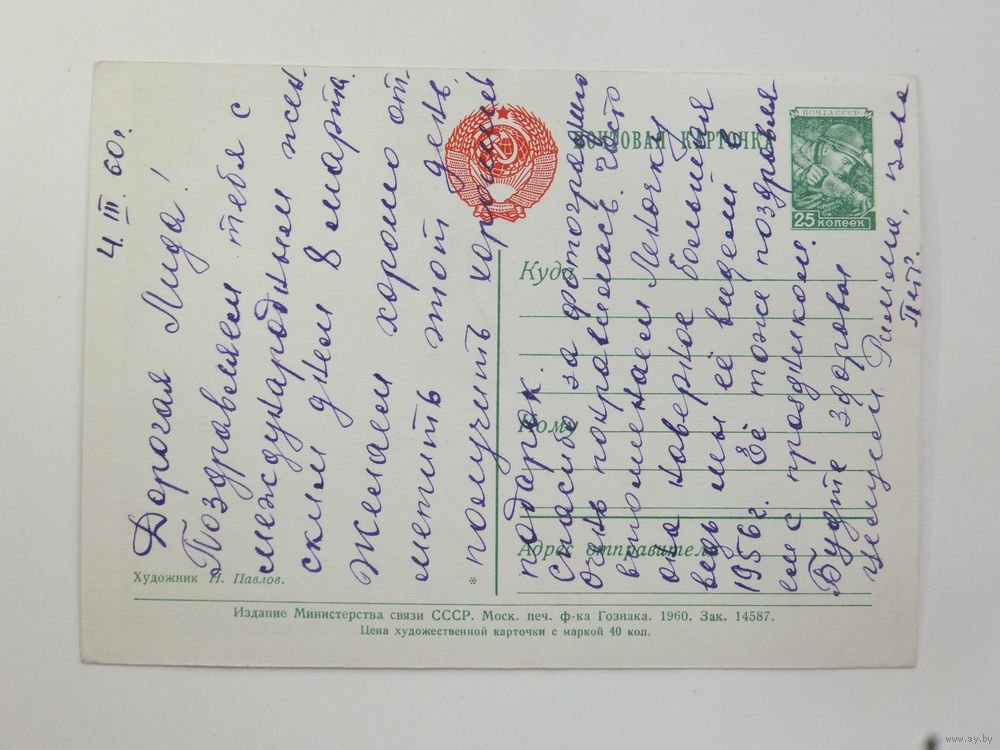 4. III 60г.
Дорогая Лида!
Поздравляем тебя с
международным жен-
ским днем 8 марта.
Желаем хорошо от-
метить этот день,
получить хороший
подарок.
Спасибо за фотографию
очень понравилась. Часто
вспоминаем Леночку
она наверное большая
ведь мы её видели в
1956г. Её тоже поздравля-
ем с праздником.
Будте здоровы
целуем Римма, Вова
Петр.
ПОЧТОВАЯ КАРТОЧКА
ПОЧТА СССР
25 КОПЕЕК
Куда
Кому
Адрес отправителя
Художник П. Павлов.
*
Издание Министерства связи СССР. Моск. печ. ф-ка Гознака. 1960. Зак. 14587.
Цена художественной карточки с маркой 40 коп.
www.ay.by